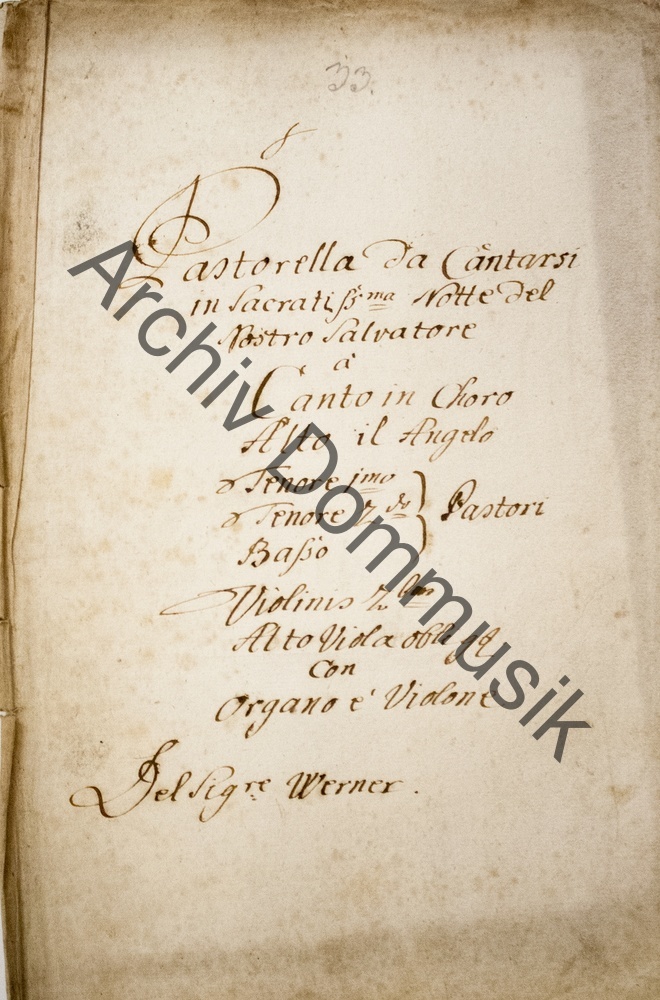 33.
Pastorella Da Cantarsi
in Sacratiss:ma Notte Del
Nostro Salvatore
à
Canto in Choro
Alto il Angelo
Tenore jmo
Tenore 2do
Basso
Pastori
Violinis 2bus
Alto Viola
Con
Organo è Violone
Del Sigre Werner.
Archiv Dommusik